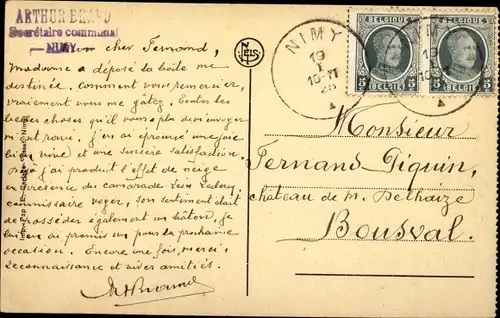 ARTHUR BRAND
Secrétaire communal
NIMY
Mon cher Fernand,
Madame a déposé la boîte me
destinée, comment vous remercier,
vraiment vous me gâtez. Toutes les
belles choses qu'il vous a plu de m'envoyer
m'ont ravi. J'en ai éprouvé une joie
bien vive et une sincère satisfaction.
Déjà j'ai produit l'effet de neige
en présence du camarade Léon
commissaire voyer, son sentiment était
de posséder également un bâton, je
lui en ai promis un pour la prochaine
occasion. Encore une fois, merci,
reconnaissance et vives amitiés.
NELS
NIMY
19
I
10-11
25
BELGIQUE
5 5
BELGIË
BELGIQUE
5 5
BELGIË
Monsieur
Fernand Piquin,
château de M. Delhaize
Bousval.